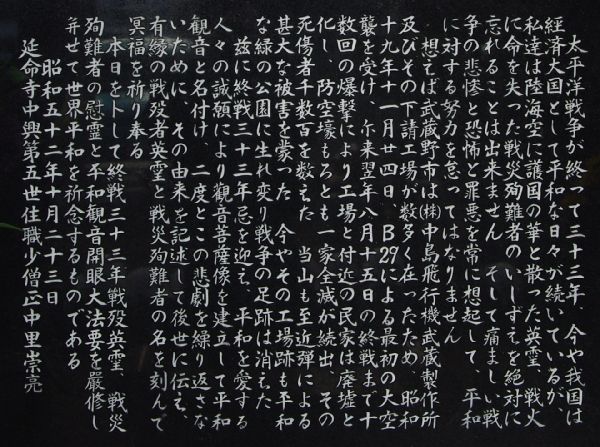 太平洋戦争が終って三十三年、今や我国は、
経済大国として平和な日々が続いているが、
私達は陸海空に護国の華と散った英霊、戦火
に命を失った戦災殉難者のいしずえを絶対に
忘れることは出来ません そして痛ましい戦
争の悲惨と恐怖と罪悪を常に想起して、平和
に対する努力を怠ってはなりません
想えば武蔵野市は㈱中島飛行機武蔵製作所
及びその下請工場が数多く在ったため、昭和
十九年十一月廿四日、B29による最初の大空
襲を受け、尓来翌年八月十五日の終戦まで十
数回の爆撃により工場と付近の民家は廃墟と
化し、防空壕もろとも一家全滅が続出、その
死傷者千数百を数えた 当山も至近弾による
甚大な被害を蒙った 今やその工場跡も平和
な緑の公園に生れ変り戦争の足跡は消えた
玆に終戦三十三年忌を迎え、平和を愛する
人々の誠願により觀音菩薩像を建立して平和
観音と名付け、二度とこの悲劇を繰り返さな
いために、その由来を記述して後世に伝え、
有縁の戦歿者英霊と戦災殉難者の名を刻んで
冥福を祈り奉る
本日を卜して終戦三十三年戦歿英霊、戦災
殉難者の慰霊と平和観音開眼大法要を厳修し
併せて世界平和を祈念するものである
昭和五十二年十月二十三日
延命寺中興第五世住職少僧正中里崇亮